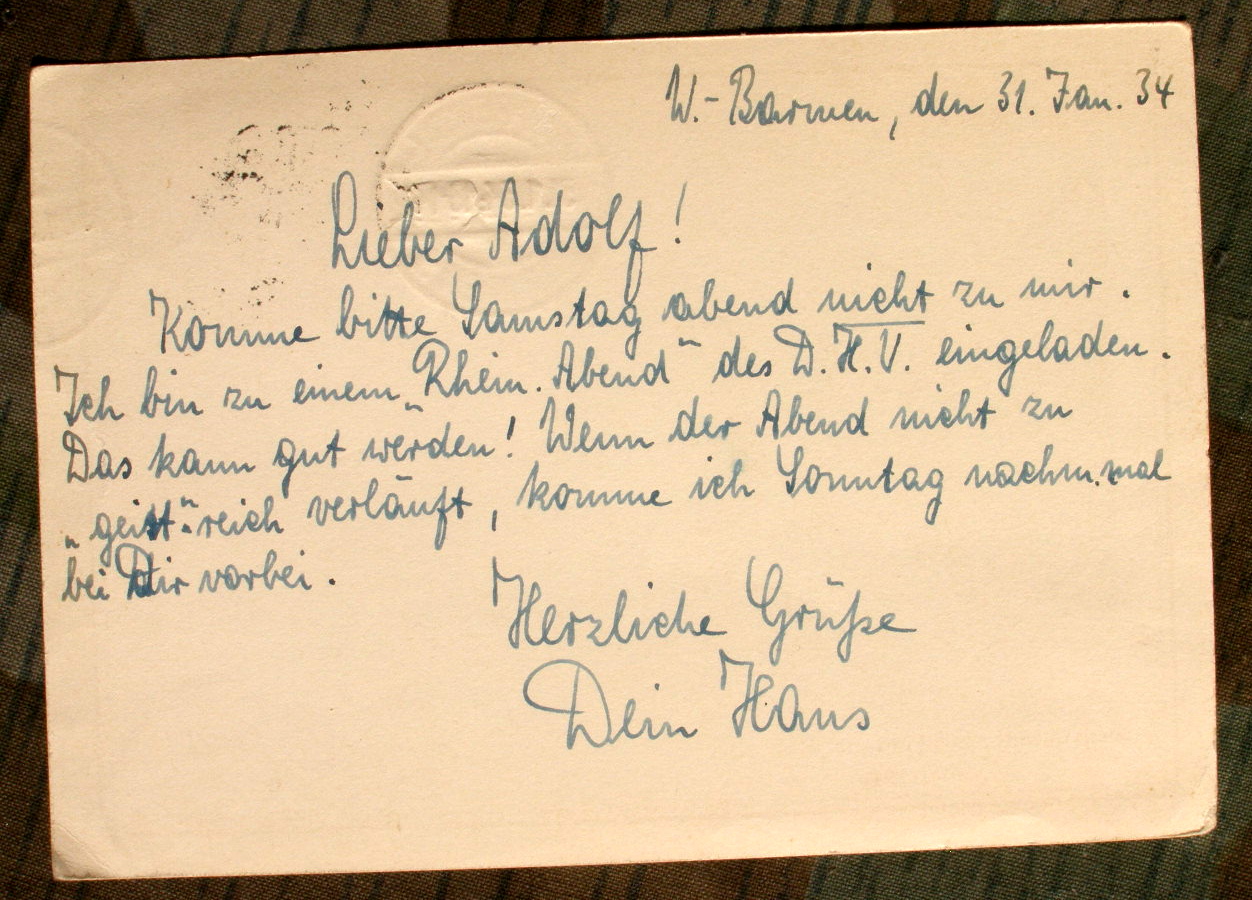 W.-Barmen, den 31. Jan. 34
Lieber Adolf!
Komme bitte Samstag abend nicht zu mir.
Ich bin zu einem „Rhein. Abend“ des D.H.V. eingeladen.
Das kann gut werden! Wenn der Abend nicht zu
„geist“reich verläuft, komme ich Sonntag nachm. mal
bei Dir vorbei.
Herzliche Grüße
Dein Hans